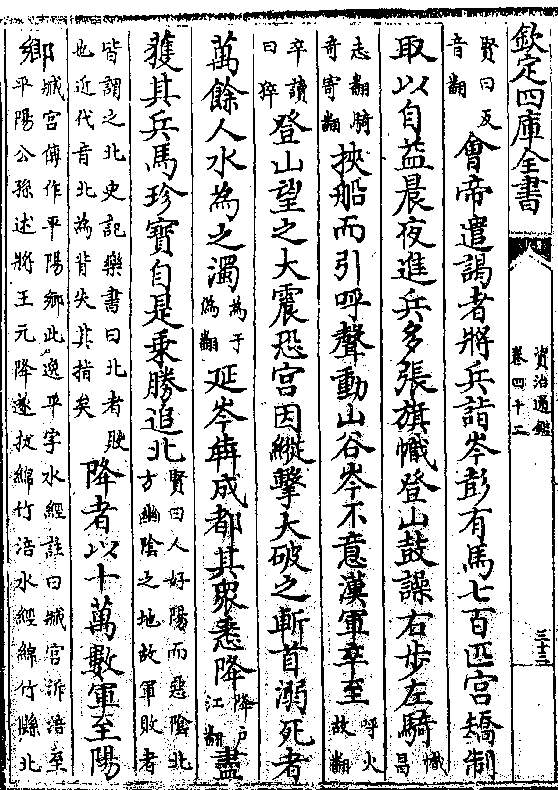 欽定四庫全書
資治通鑑
卷四十二
賢曰反
音翻
會帝遣謁者將兵詣岑彭有馬七百匹宮矯制
取以自益晨夜進兵多張旗幟登山鼓譟右步左騎
幟
昌
志翻騎
奇寄翻
挾船而引呼聲動山谷岑不意漢軍卒至
呼火
故翻
卒讀
曰猝
登山望之大震恐宮因縱擊大破之斬首溺死者
萬餘人水為之濁
為于
偽翻
延岑犇成都其衆悉降
降户
江翻
盡
獲其兵馬珍寶自是乘勝追北
賢曰人好陽而惡陰北
方幽陰之地故軍敗者
皆謂之北史記樂書曰北者敗
也近代音北為背失其指矣
降者以十萬數軍至陽
鄉
臧宮傳作平陽鄉此逸平字水經註曰臧宮泝涪至
平陽公孫述將王元降遂拔綿竹涪水經綿竹縣北